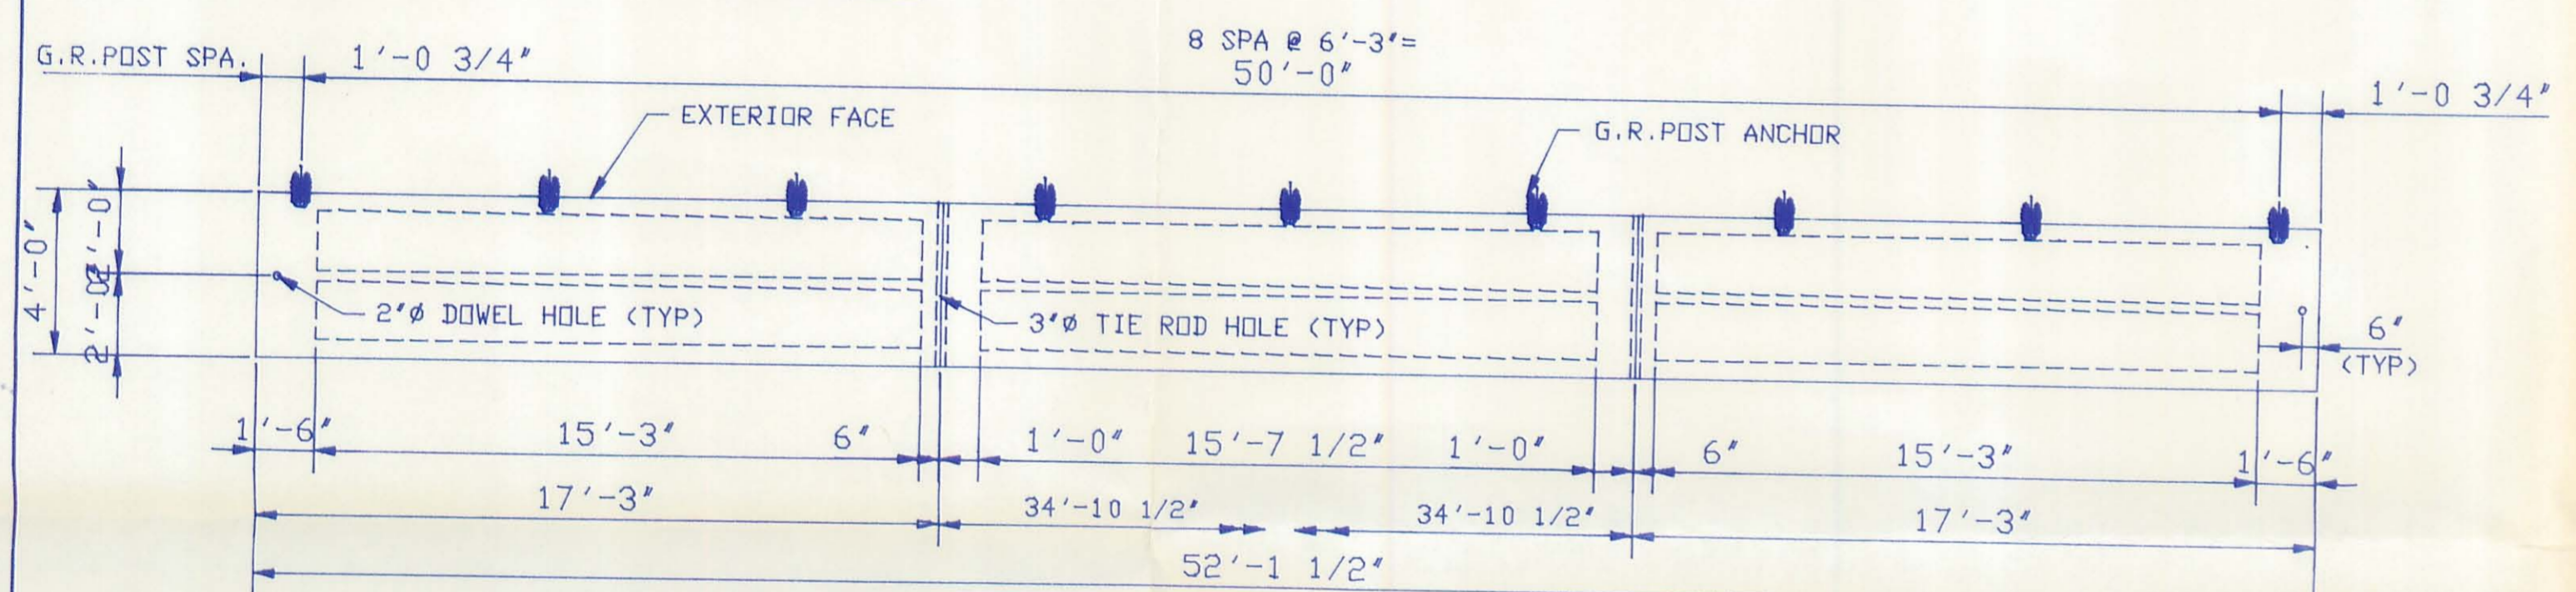 8 SPA @ 6'-3"=
50'-0"
G.R.POST SPA.
1'-0 3/4"
1'-0 3/4"
EXTERIOR FACE
G.R.POST ANCHOR
4'-0"
2"Ø DOWEL HOLE (TYP)
3"Ø TIE ROD HOLE (TYP)
6"
(TYP)
1'-6"
15'-3"
6"
1'-0"
15'-7 1/2"
1'-0"
6"
15'-3"
1'-6"
17'-3"
34'-10 1/2"
34'-10 1/2"
17'-3"
52'-1 1/2"